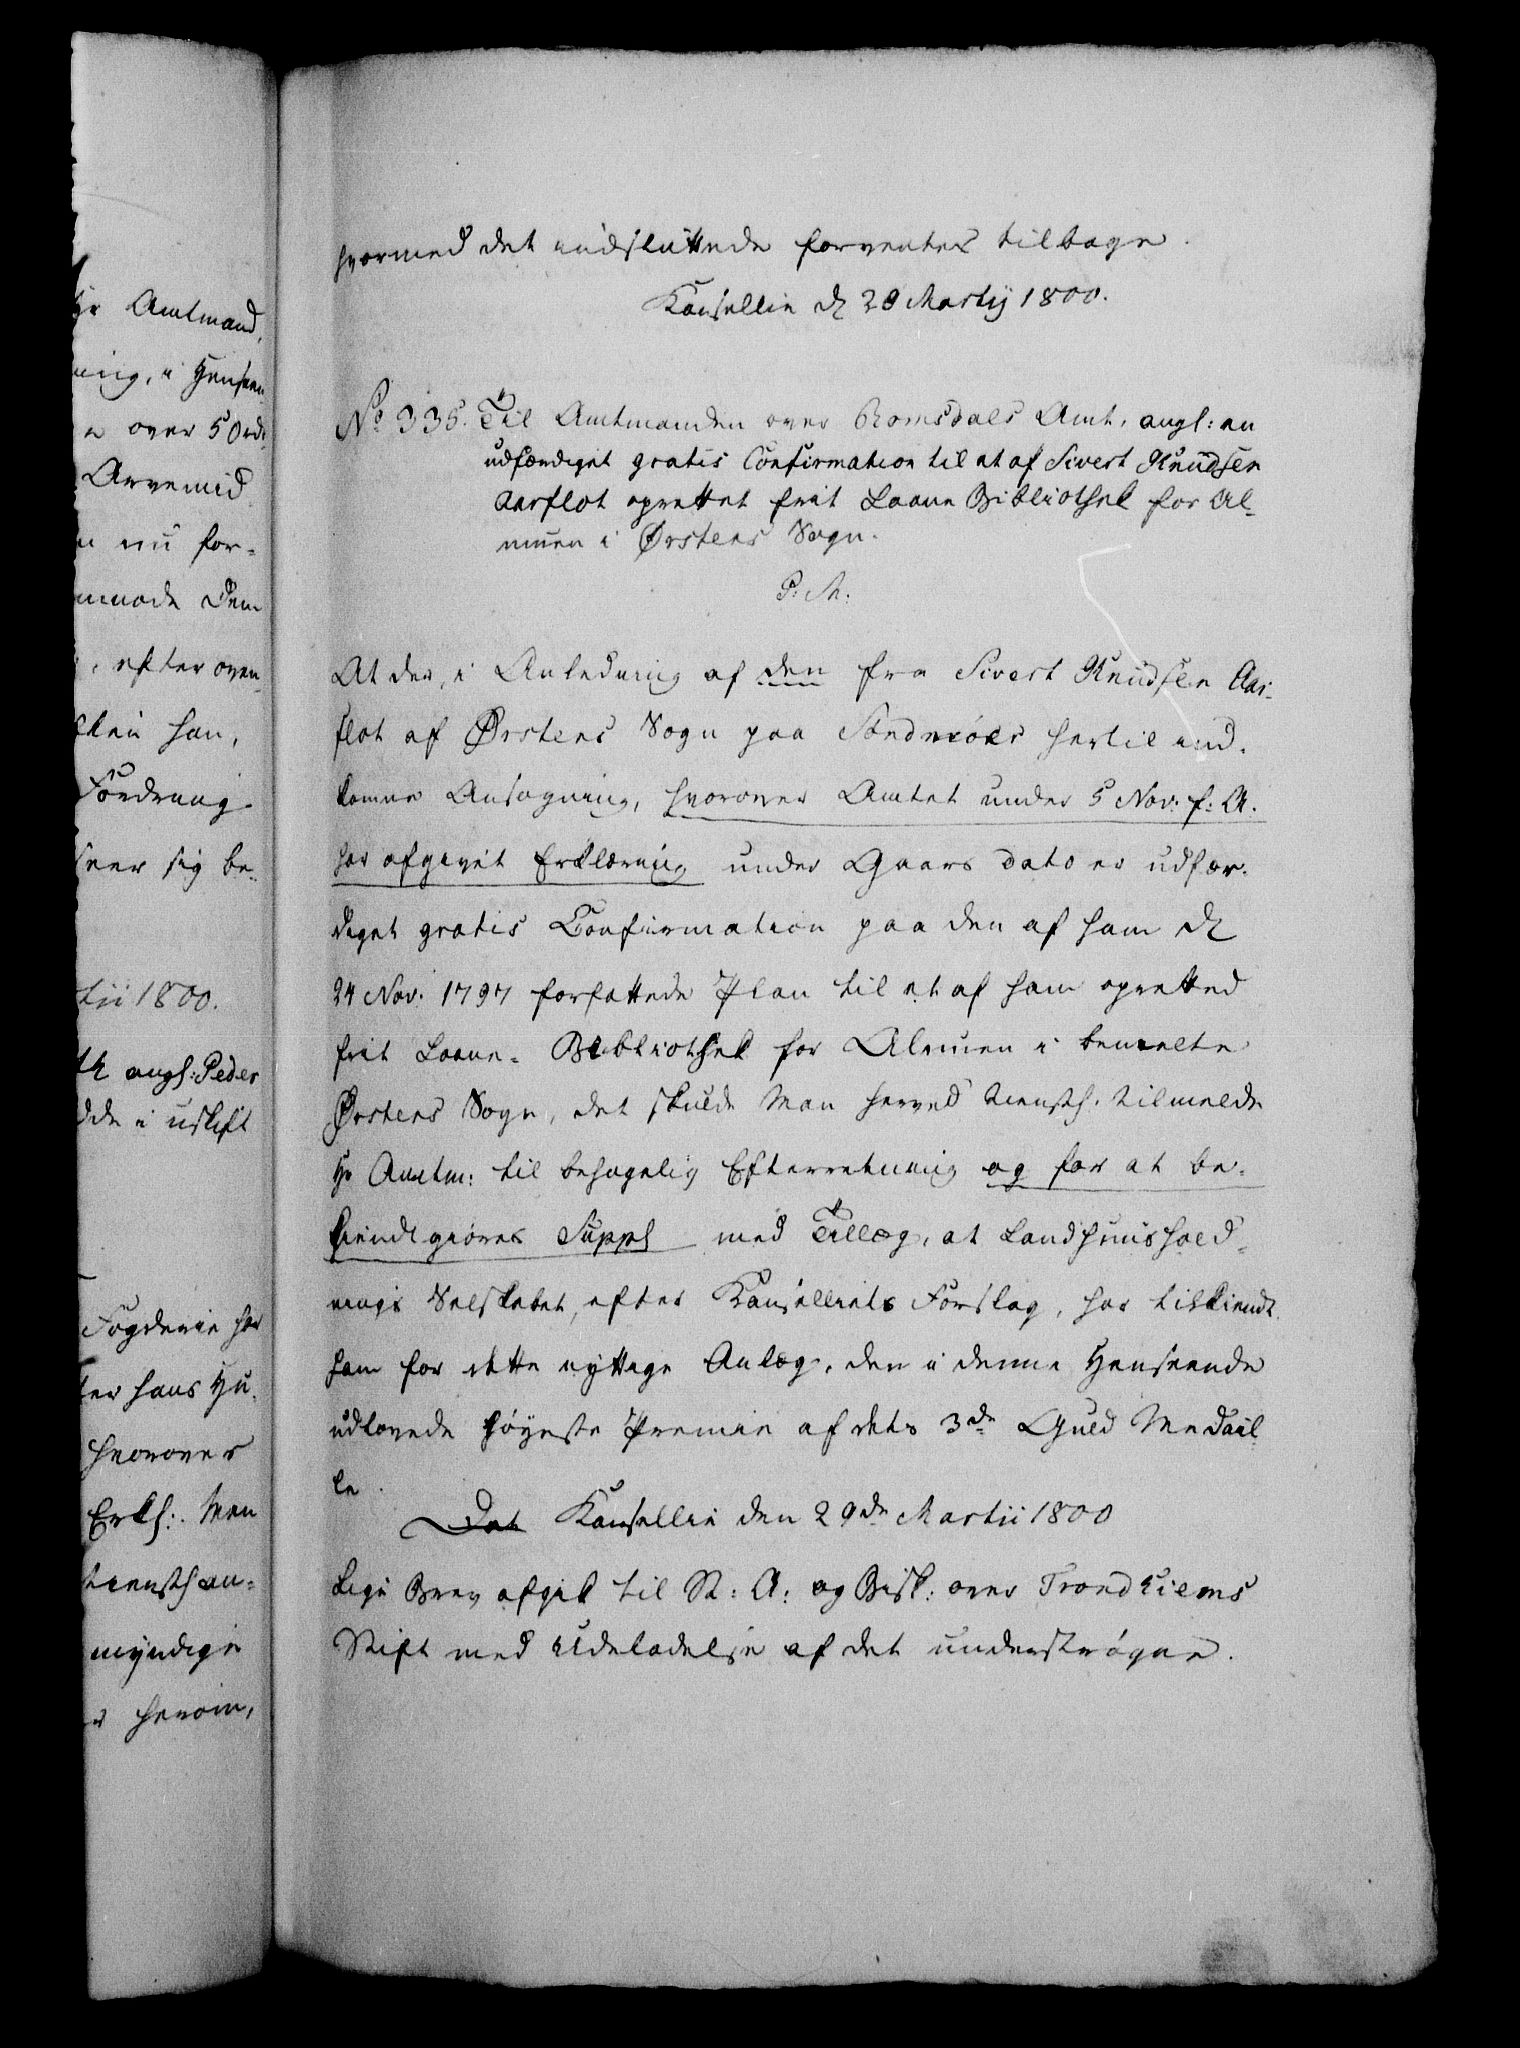 hvormed det indsluttede forventes tilbage.
Kancellie d 29 Martij 1800.
No 335. Til Amtmanden over Romsdals Amt, angl: en
udfærdiget gratis Confirmation til et af Sivert Knudsen
Aarflot oprettet friit Laane Bibliothek for Al-
muen i Ørstens Sogn.
P: M:
At der, i Anledning af den fra Sivert Knudsen Aar-
flot af Ørstens Sogn paa Søndmöer hertil ind-
komne Ansøgning, hvorover Amtet under 5 Nov: f: A.
har afgivet Erklæring under Gaars dato er udfær-
diget gratis Confirmation paa den af ham d
24 Nov: 1797 forfattede Plan til et af ham oprettet
friit Laane- Bibliothek for Almuen i bemelte
Ørstens Sogn, det skulde Man herved tienstl. tilmelde
Hr Amtm: til behagelig Efterretning og for at be-
kiendtgiøres Suppl med Tillæg, at Landhuushold-
nings Selskabet, efter Kancelliets Forslag, har tilkiendt
ham for dette nyttige Anlæg, den i denne Henseende
udlovede höyeste Premie af dets 3de Guld Medail-
le.
Det Kancellie den 29de Martii 1800
Lige Brev afgik til St: A: og Bisk: over Trondhiems
Stift med Udeladelse af det understrøgne.
Hr Amtmand,
ning, i Hensee
n over 50 rd
Arvemid
n nu for-
mmode Dem
, efter oven
han,
Fordring
seer sig be-
tii 1800.
angl: Peder
dde i uskift
Fogderie har
ter hans Hu
hvorover
Erkl: Man
tienstl an-
myndige
r herom,